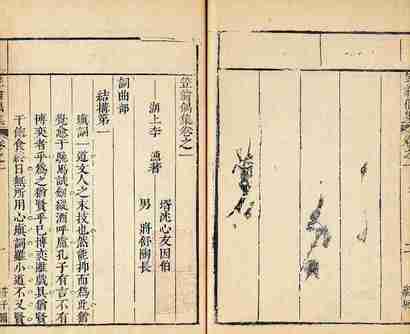 笠翁偶集卷之一
湖上李 漁著
壻沈心友因伯
男 將舒陶長
詞曲部
結構第一
填詞一道文人之末技也然能抑而為此猶
覺愈于馳馬試劍縱酒呼盧孔子有言不有
博奕者乎為之猶賢乎已博奕雖戲具猶賢
于飽食終日無所用心填詞雖小道不又賢